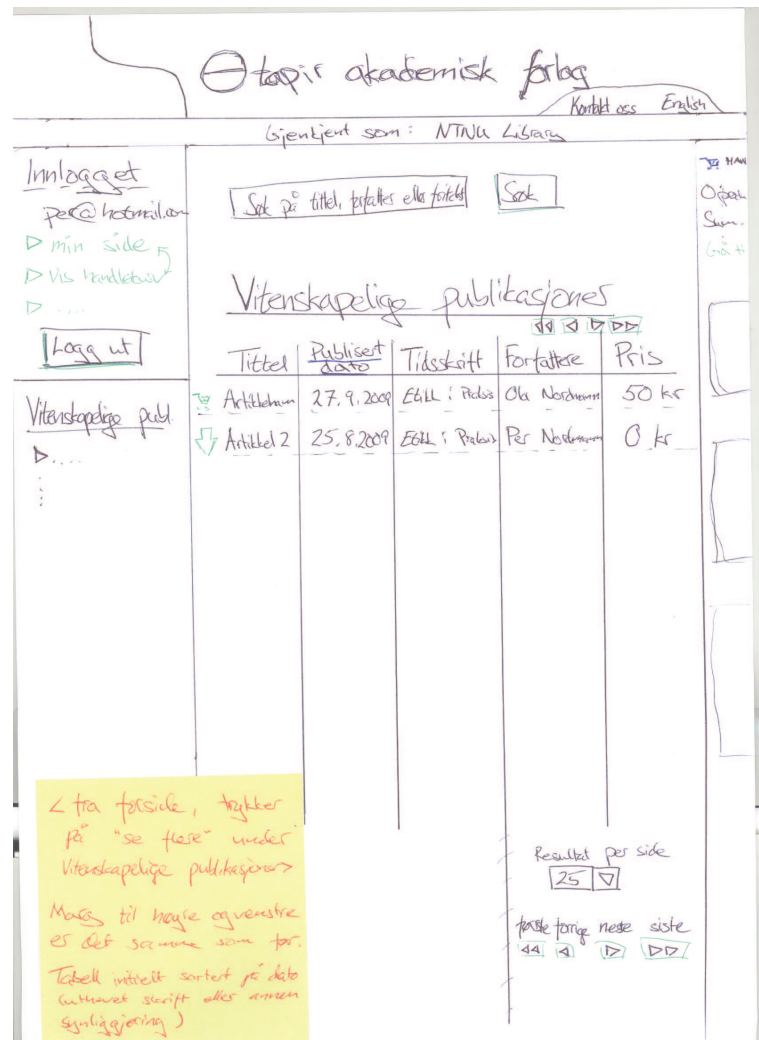 tapir akademisk forlag
Kontakt oss English
Gjenkjent som: NTNU Library
Innlogget
per@hotmail.com
▷ min side
▷ Vis handlekurv
▷ ....
Logg ut
Vitenskapelige publ
▷ ....
Søk på tittel, forfatter eller
Søk
HAN
Sum.
Gå ti
Vitenskapelige publikasjoner
Tittel Publisert dato Tidsskrift Forfattere Pris
Artikkelnavn 27.9.2009 Etikk i Praksis Ola Nordmann 50 kr
Artikkel 2 25.8.2009 Etikk i Praksis Per Nordmann 0 kr
Resultat per side
25
første forrige neste siste
< fra forside, trykker
på "se flere" under
Vitenskapelige publikasjoner>
Marg til høyre og venstre
er det samme som før.
Tabell initielt sortert på dato
(uthevet skrift eller annen
synliggjøring)